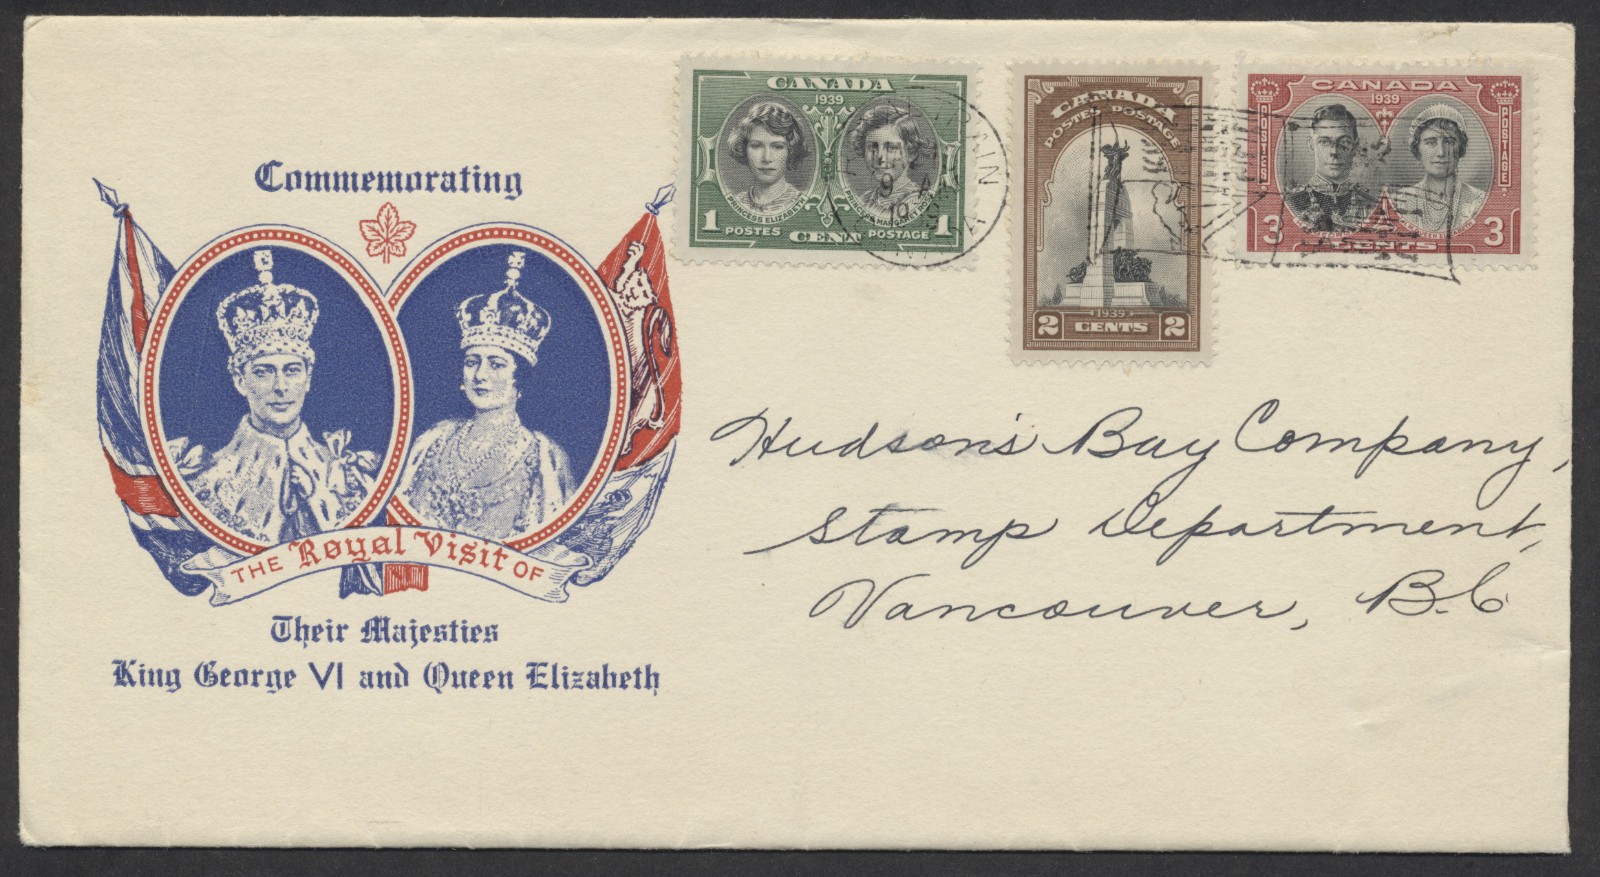 Commemorating
THE Royal Visit OF
Their Majesties
King George VI and Queen Elizabeth
CANADA
1939
PRINCESS ELIZABETH
PRINCESS MARGARET ROSE
1 CENT 1
POSTES POSTAGE
TRAIN
CANADA
POSTES POSTAGE
1939
2 CENTS 2
CANADA
1939
POSTES POSTAGE
3 CENTS 3
Hudson's Bay Company,
Stamp Department,
Vancouver, B.C